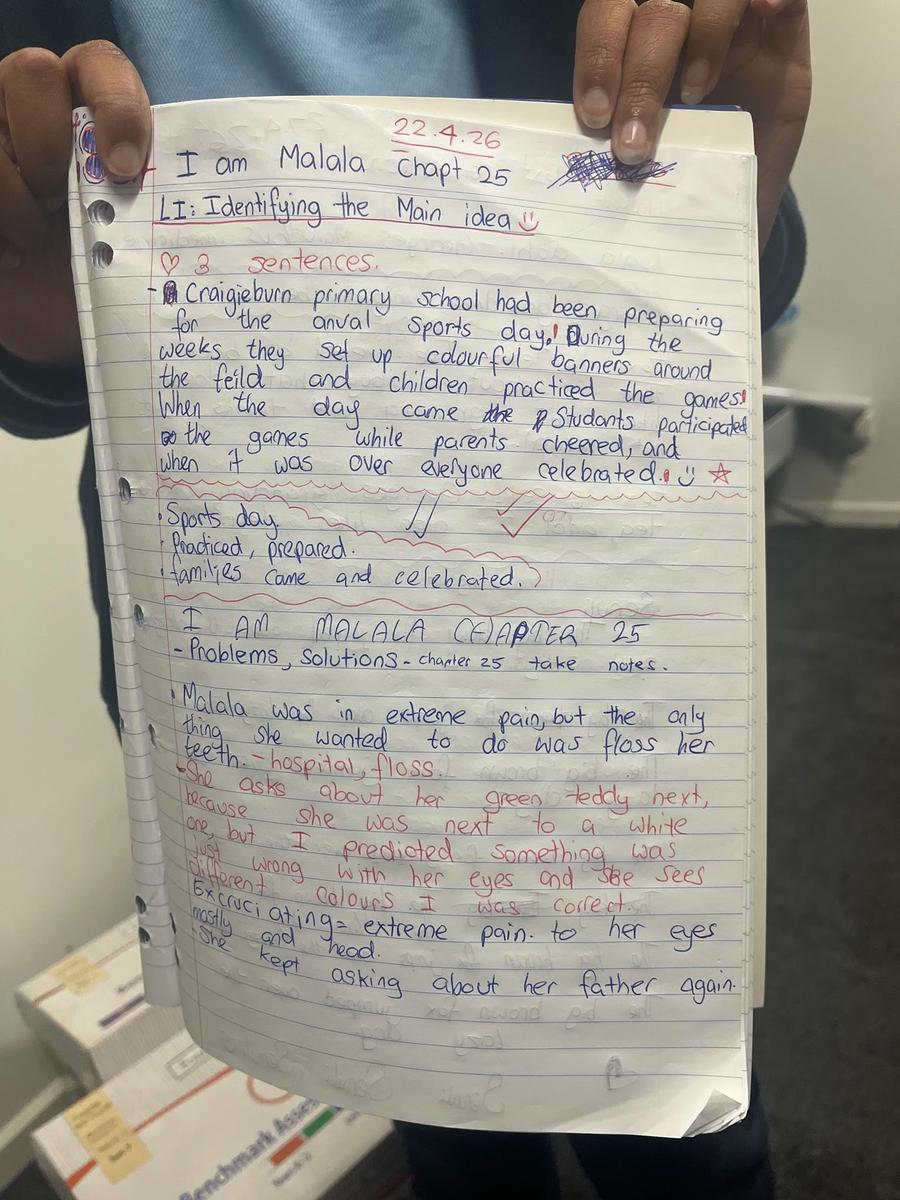 22.4.26
I am Malala Chapt 25
LI: Identifying the Main idea
3 sentences.
- Craigieburn primary school had been preparing
for the anual sports day. During the
weeks they set up colourful banners around
the feild and children practiced the games.
When the day came the Students participated
the games while parents cheered, and
when it was over everyone celebrated.
• Sports day.
• Practiced, prepared.
• families came and celebrated.
I AM MALALA CHAPTER 25
- Problems, solutions - chapter 25 take notes.
• Malala was in extreme pain, but the only
thing she wanted to do was floss her
teeth. - hospital, floss.
- She asks about her green teddy next,
because she was next to a white
one, but I predicted something was
just wrong with her eyes and she sees
different colours I was correct.
Excruciating = extreme pain. to her eyes
mostly and head.
- She kept asking about her father again.
Benchmark Asses